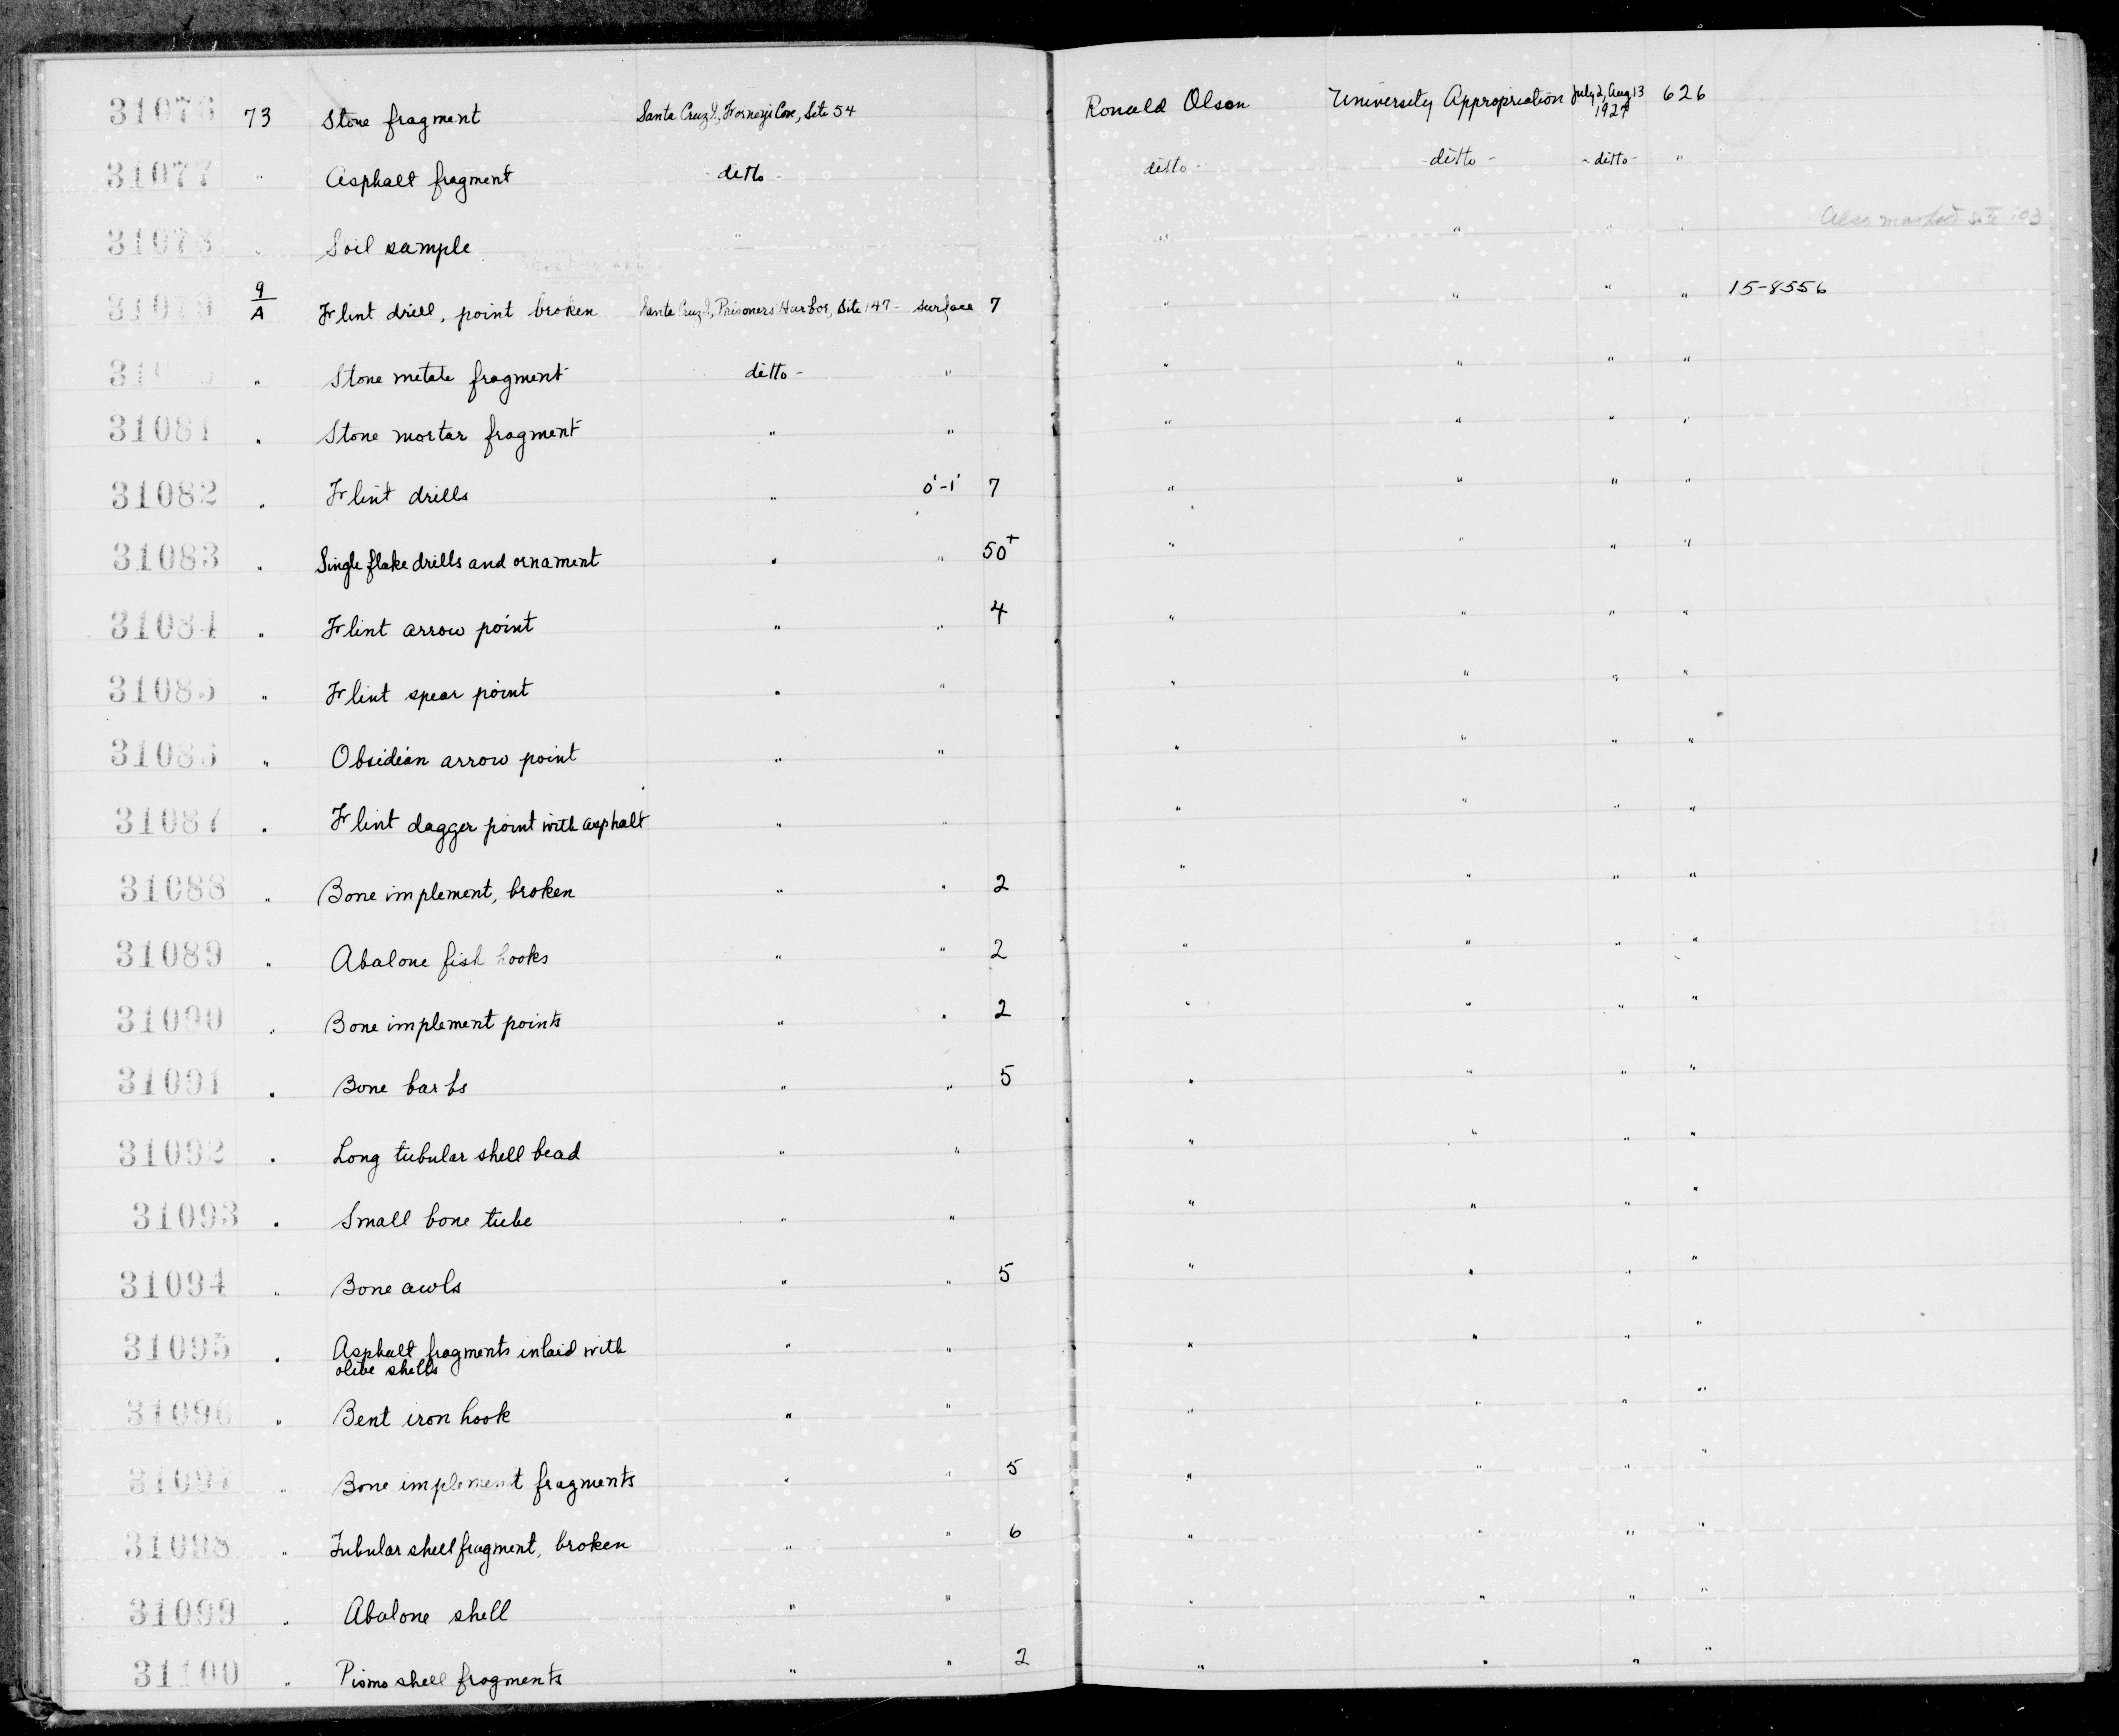 31076 73 Stone fragment Santa Cruz I, Forney's Cove, Site 54 Ronald Olson University Appropriation July 2, Aug 13 1927 626
31077 " Asphalt fragment ditto - ditto - - ditto - - ditto - "
31078 " Soil sample " " " " " Also marked Site 103
31079 9/A Flint drill, point broken Santa Cruz I, Prisoners Harbor, Site 147 - surface 7 " " " " 15-8556
" Stone metate fragment ditto - " " " " "
31081 " Stone mortar fragment " " " " " "
31082 " Flint drills " 0'-1' 7 " " " "
31083 " Single flake drills and ornament " " 50+ " " " "
31084 " Flint arrow point " " 4 " " " "
31085 " Flint spear point " " " " " "
31086 " Obsidian arrow point " " " " " "
31087 " Flint dagger point with asphalt " " " " " "
31088 " Bone implement, broken " " 2 " " " "
31089 " Abalone fish hooks " " 2 " " " "
31090 " Bone implement points " " 2 " " " "
31091 " Bone barbs " " 5 " " " "
31092 " Long tubular shell bead " " " " " "
31093 " Small bone tube " " " " " "
31094 " Bone awls " " 5 " " " "
31095 " Asphalt fragments inlaid with " " " " " "
olive shells
31096 " Bent iron hook " " " " " "
31097 " Bone implement fragments " " 5 " " " "
31098 " Tubular shell fragment, broken " " 6 " " " "
31099 " Abalone shell " " " " " "
31100 " Pismo shell fragments " " 2 " " " "